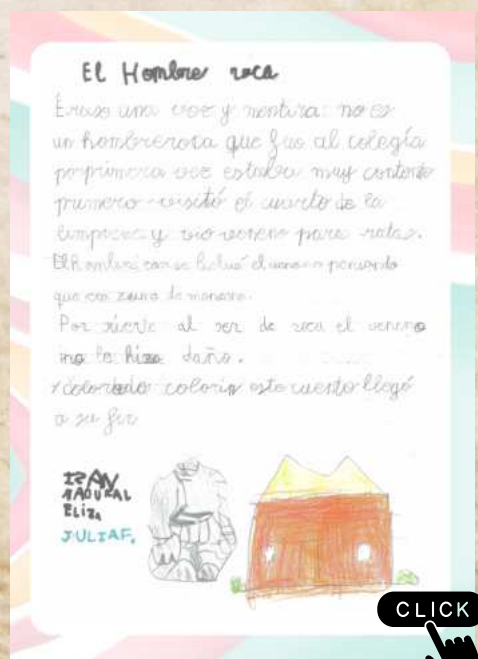 El Hombre roca
Érase una vez y mentira no es
un hombre roca que fue al colegio
por primera vez estaba muy contento
primero visitó el cuarto de la
limpieza y vio veneno para ratas.
El hombre roca se bebió el veneno pensando
que era zumo de manzana.
Por suerte al ser de roca el veneno
no le hizo daño.
Y colorado colorín este cuento llegó
a su fin
IRAN
ELIZA
JULIA F.
CLICK